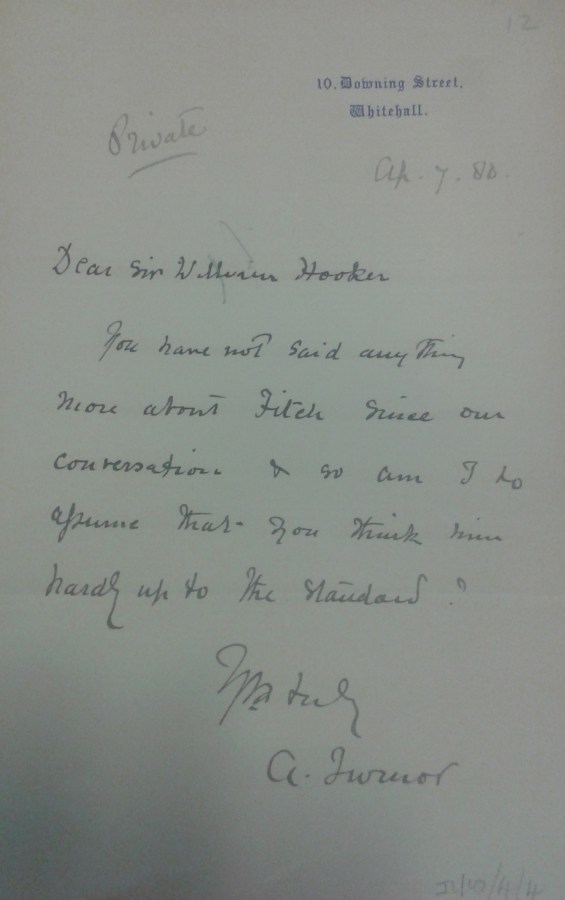 12
10, Downing Street,
Whitehall.
Private
Ap. 7. 80.
Dear Sir William Hooker
You have not said anything
more about Fitch since our
conversation & so am I to
assume that you think him
hardly up to the standard?
Yrs truly
A. Turnor